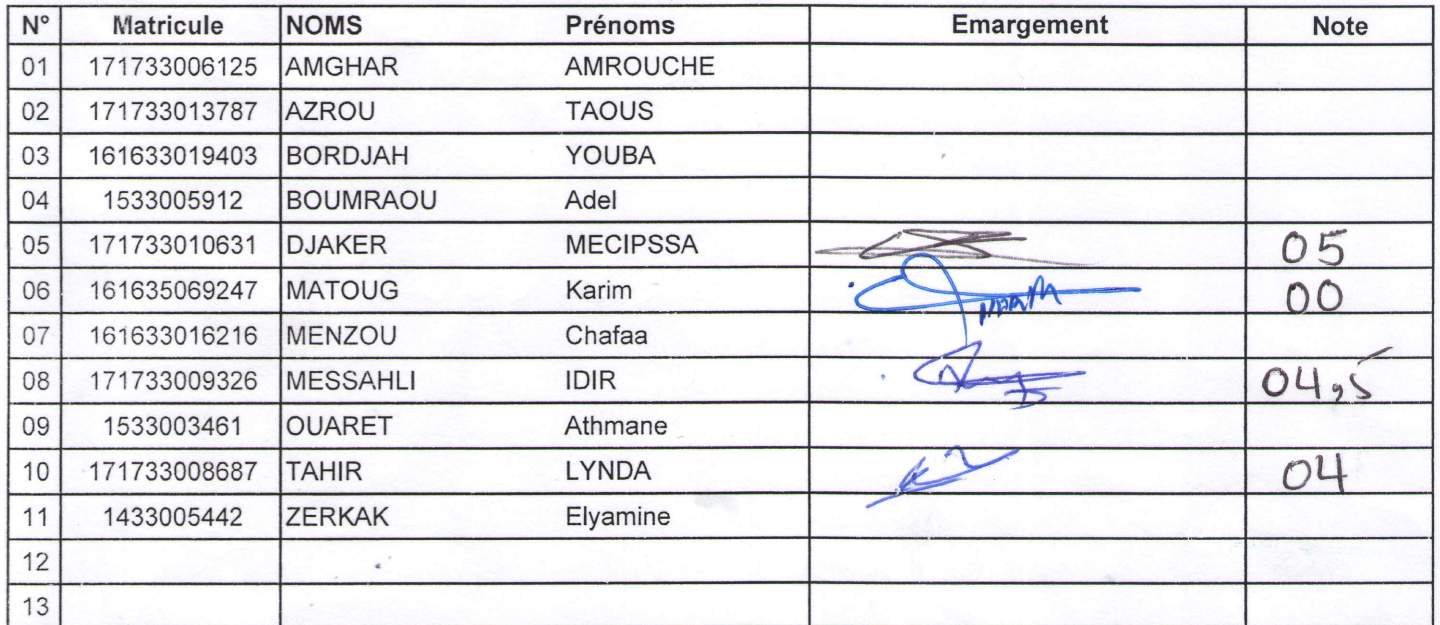 N° Matricule NOMS Prénoms Emargement Note
01 171733006125 AMGHAR AMROUCHE
02 171733013787 AZROU TAOUS
03 161633019403 BORDJAH YOUBA
04 1533005912 BOUMRAOU Adel
05 171733010631 DJAKER MECIPSSA 05
06 161635069247 MATOUG Karim 00
07 161633016216 MENZOU Chafaa
08 171733009326 MESSAHLI IDIR 04,5
09 1533003461 OUARET Athmane
10 171733008687 TAHIR LYNDA 04
11 1433005442 ZERKAK Elyamine
12
13